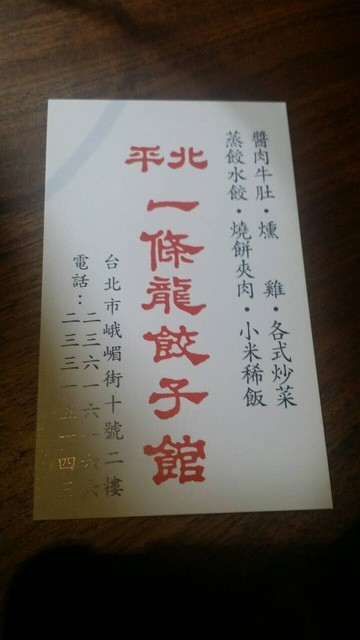 醬肉牛肚・燻雞・各式炒菜
蒸餃水餃・燒餅夾肉・小米稀飯
北平
一條龍餃子館
台北市峨嵋街十號二樓
電話：二三六一六一六六
二三三一五一四三